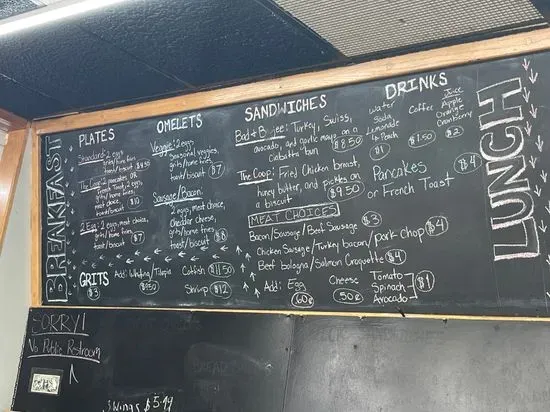 BREAKFAST
PLATES
Standard: 2 eggs
grits/home fries
toast/biscuit $4.50
The Coop: 2 pancakes OR
French Toast, 2 eggs
meat choice,
toast/biscuit $10
2 Egg: 2 eggs, meat choice,
grits/home fries,
toast/biscuit $7
GRITS
$3
Add: Whiting/Tilapia Catfish $11.50
$9.50 Shrimp $12
OMELETS
Veggie: 2 eggs
Seasonal veggies,
grits/home fries
toast/biscuit $7
Sausage/Bacon:
2 eggs, meat choice,
cheddar cheese,
grits/home fries,
toast/biscuit $8
SANDWICHES
Bad + Boujee: Turkey, Swiss,
avocado, and garlic mayo on a
Ciabatta bun $8.50
The Coop: Fried Chicken breast,
honey butter, and pickles on
a biscuit $9.50
MEAT CHOICES
Bacon/Sausage/Beef Sausage $3
Chicken Sausage/Turkey bacon/pork chop $4
Beef bologna/Salmon Croquette $4
Add: Egg .60¢
Cheese .50¢
Tomato
Spinach
Avocado $1
DRINKS
Water
Soda
Lemonade
Peach
$1
Coffee
$1.50
Juice
Apple
Orange
Cranberry
$2
Pancakes
or French Toast $4
LUNCH
SORRY!
No Public Restroom
3 Wings $5.49